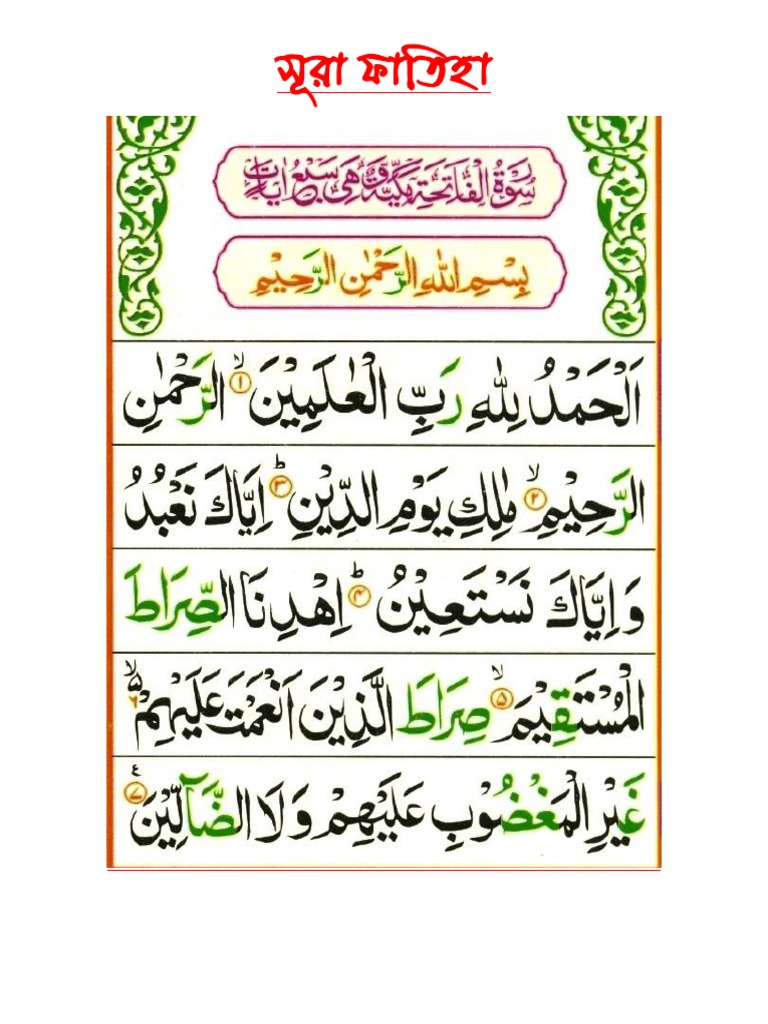 সূরা ফাতিহা
سُوْرَةُ الْفَاتِحَةِ مَكِّيَّةٌ وَّهِىَ سَبْعُ اٰيَاتٍ
بِسْمِ اللّٰهِ الرَّحْمٰنِ الرَّحِيْمِ
اَلْحَمْدُ لِلّٰهِ رَبِّ الْعٰلَمِيْنَ ۙ‏﴿۱﴾ الرَّحْمٰنِ
الرَّحِيْمِ ۙ‏﴿۲﴾ مٰلِكِ يَوْمِ الدِّيْنِ ؕ‏﴿۳﴾ اِيَّاكَ نَعْبُدُ
وَاِيَّاكَ نَسْتَعِيْنُ ؕ‏﴿۴﴾ اِهْدِنَا الصِّرَاطَ
الْمُسْتَقِيْمَ ۙ‏﴿۵﴾ صِرَاطَ الَّذِيْنَ اَنْعَمْتَ عَلَيْهِمْ ۙ۵ ﴿۶﴾
غَيْرِ الْمَغْضُوْبِ عَلَيْهِمْ وَلَا الضَّآلِّيْنَ ﴿۷﴾ ع